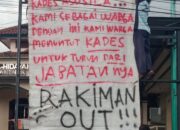 KADES
KAMI SEBAGAI WARGA
DENGAN INI KAMI WARGA
MENUNTUT KADES
UNTUK TURUN DARI
JABATAN NYA
RAKIMAN
OUT!!!
HIDA